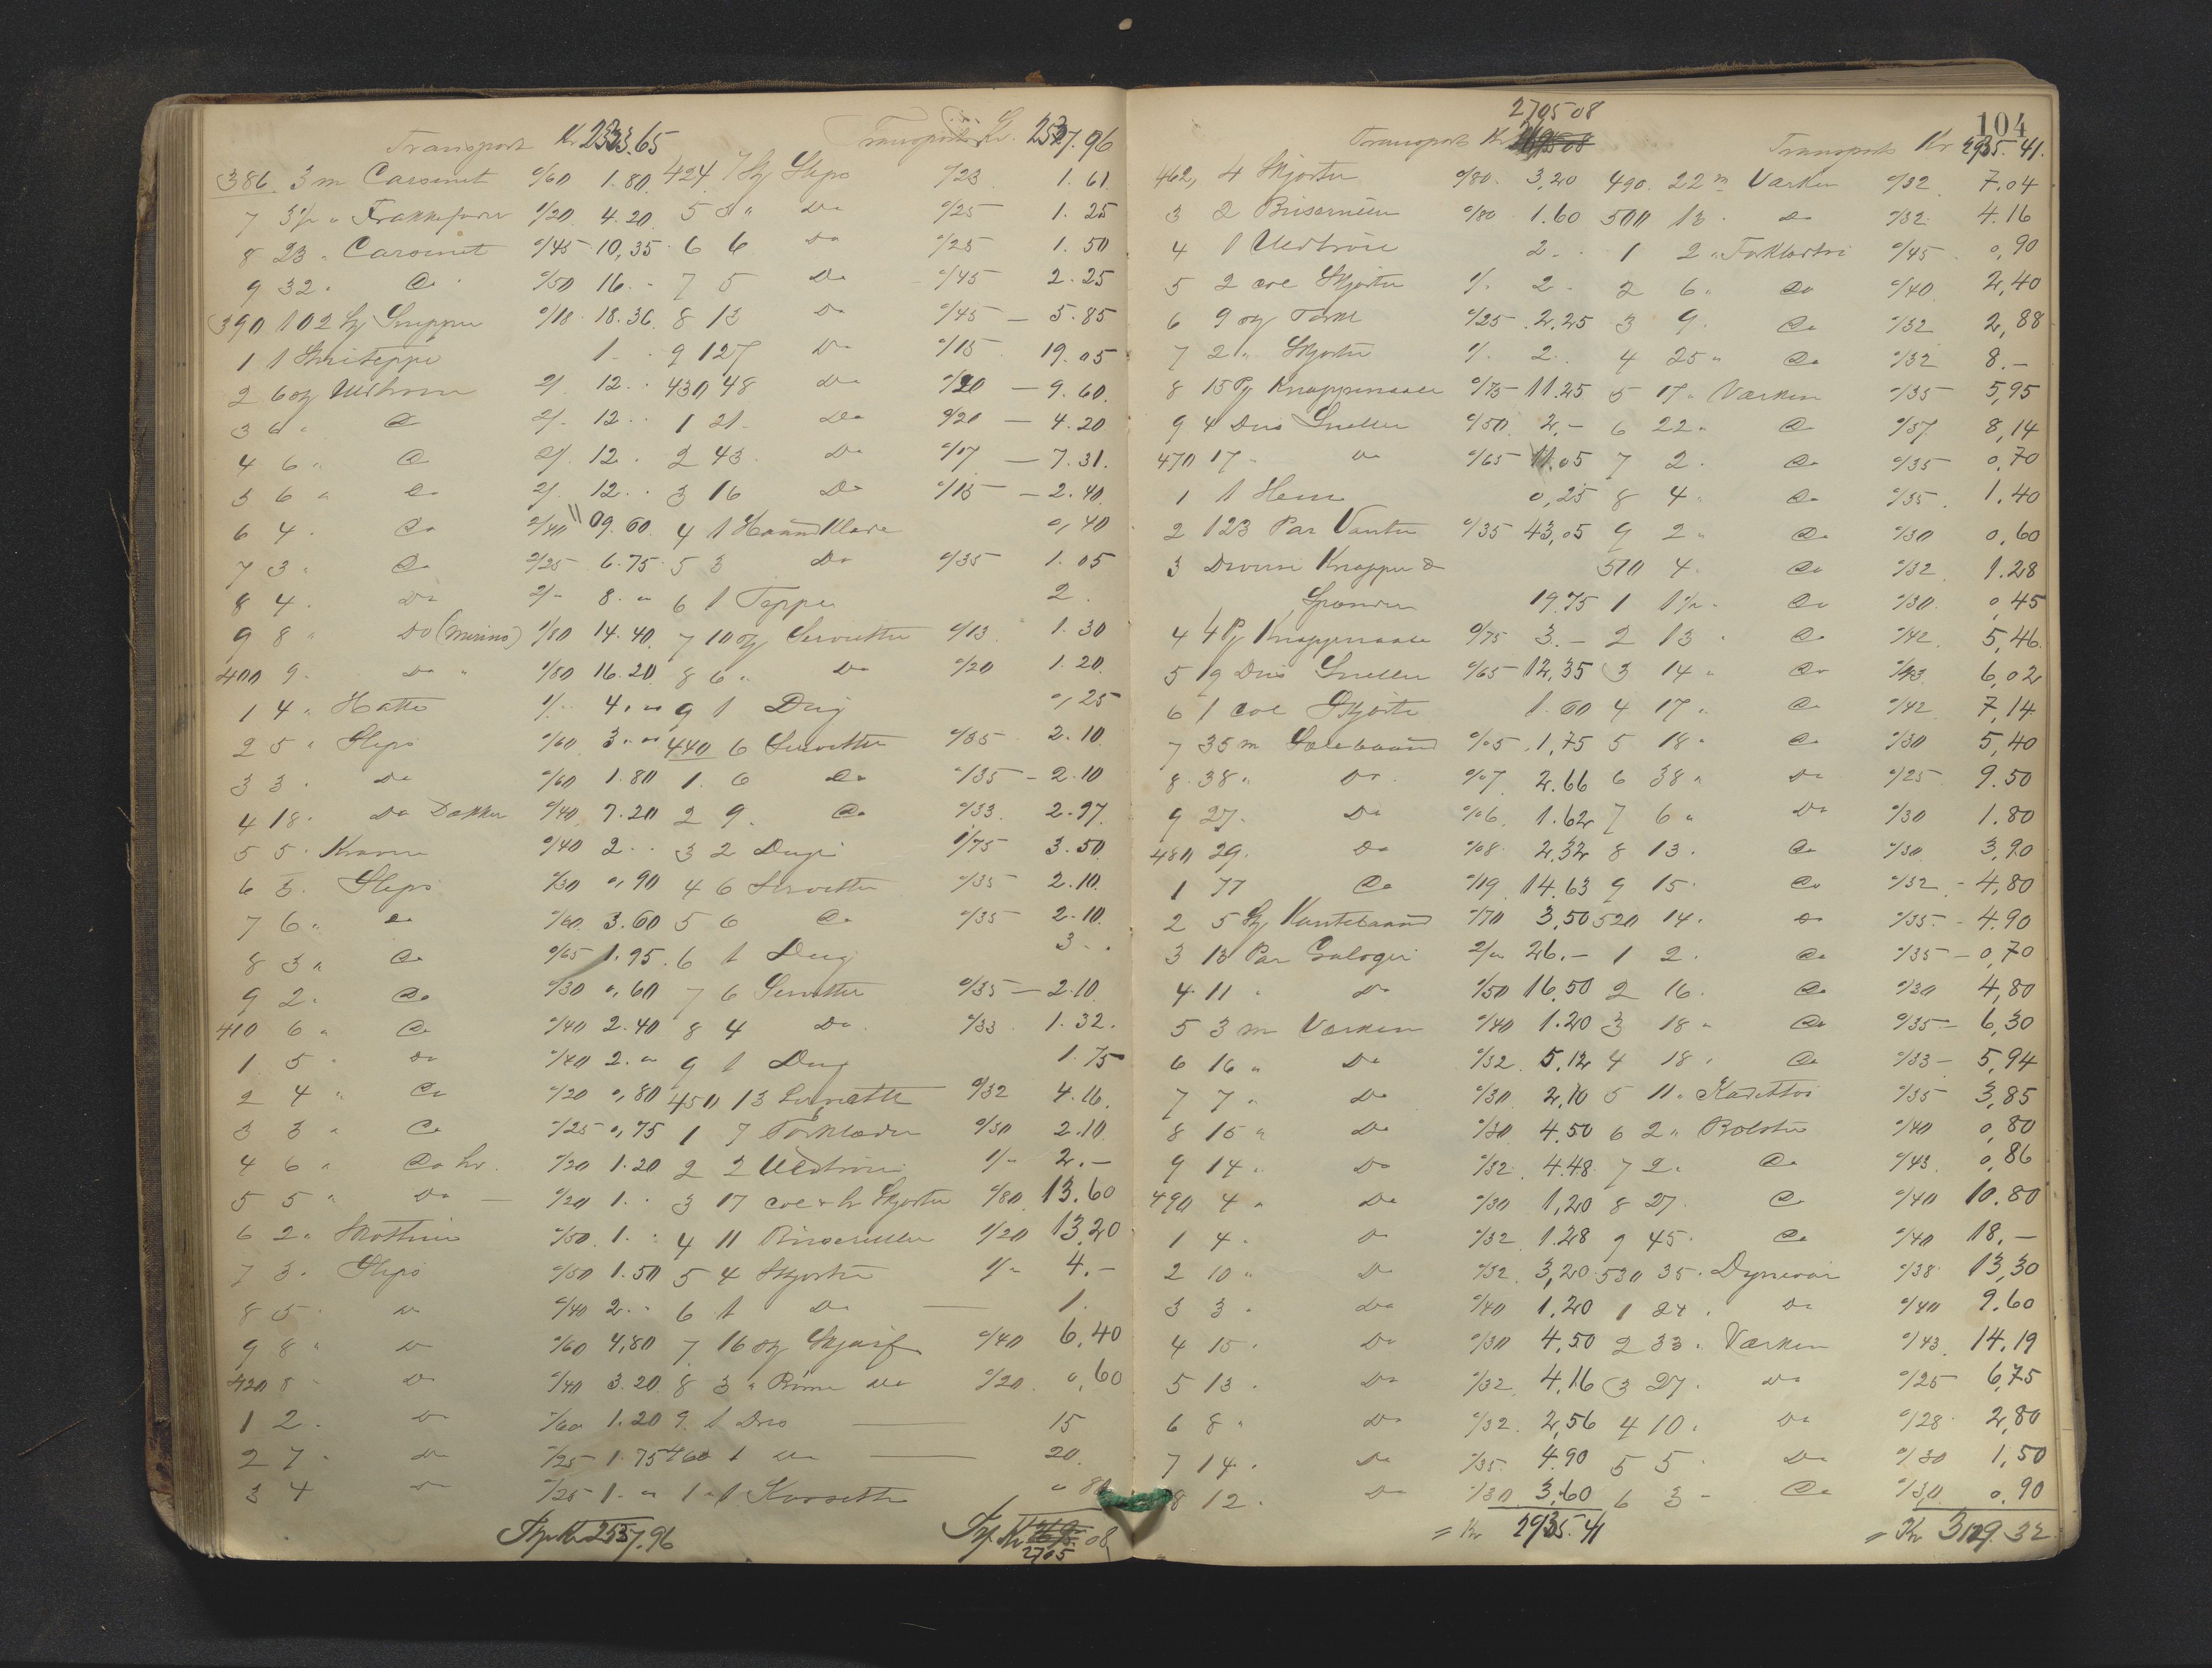 Transport Kr 2333.65
386. 3 m Carsinet %60 1.80
7 3½ " Frakkefoder 1/20 4.20
8 23 " Carsinet %45 10,35
9 32 " Do %50 16. "
390 102 St Snipper %18 18.36
1 1 1. "
2 6 st Uldtrøier 2/. 12. "
3 6 " Do 2/. 12. "
4 6 " Do 2/. 12. "
5 6 " Do 2/. 12. "
6 4 " Do 2/40 09.60
7 3 " Do 2/25 6.75
8 4 " Do 2/- 8. "
9 8 " Do (Merino) 1/80 14.40
400 9 " Do " 1/80 16.20
1 4 " Hatte 1/- 4. "
2 5 " Slips %60 3. "
3 3 " Do %60 1.80
4 18 " Do Dækken %40 7.20
5 5 " Kraver %40 2. "
6 3 " Slips %30 0,90
7 6 " Do %60 3.60
8 3 " Do %65 1.95
9 2 " Do %30 0,60
410 6 " Do %40 2.40
1 5 " Do %40 2. "
2 4 " Do %20 0,80
3 3 " Do %25 0,75
4 6 " Do hv. %20 1.20
5 5 " Do — %20 1. "
6 2 " %50 1. "
7 3 " Slips %50 1.50
8 5 " Do %40 2. "
9 8 " Do %60 4,80
420 8 " Do %40 3.20
1 2 " Do %60 1.20
2 7 " Do %25 1.75
3 4 " Do %25 1. "
Kr 2537.96
Transport Kr. 2537.96
424 7 St Slips %23 1.61
5 5 " Do %25 1.25
6 6 Do %25 1.50
7 5 Do %45 2.25
8 13 Do %45 — 5.85
9 127 Do %15 19.05
430 48 Do %20 — 9.60
1 21 Do %20 — 4.20
2 43 Do %17 — 7.31
3 16 Do %15 — 2.40
4 1 Haandklæde 0,40
5 3 Do %35 1.05
6 1 Teppe 2.
7 10 st Servietter %13 1.30
8 6 " Do %20 1.20
9 1 Dug 0,25
440 6 Servietter %35 2.10
1 6 Do %35 - 2.10
2 9 Do %33 2.97
3 2 Duge 1/75 3.50
4 6 Servietter %35 2.10
5 6 Do %35 2.10
6 1 Dug 3. "
7 6 Servietter %35 — 2.10
8 4 Do %33 1.32
9 1 Dug 1.75
450 13 Servietter %32 4.16
1 7 Törklæder %30 2.10
2 2 Uldtrøier 1/- 2.-
3 17 coel & hv Skjorter %80 13.60
4 11 1/20 13.20
5 4 Skjorter 1/- 4.-
6 1 Do — 1.
7 16 st Skjærf %40 6,40
8 3 " Do %20 0,60
9 1 Dus — 15
460 1 Do — 20
1 1 Korsette 0 80
Kr 2705 08
104
2705 08
Transport Kr
462, 4 Skjorter %80 3,20
3 2 %80 1.60
4 1 Uldtrøie 2. "
5 2 coel Skjorter 1/- 2.
6 9 st Törkl %25 2.25
7 2 " Skjorter 1/- 2. "
8 15 Pj Knappenaale %75 11.25
9 4 Dus Sneller %50 2,-
470 17 " Do %65 11.05
1 1 0,25
2 123 Par Vanter %35 43,05
3 Diverse Knapper &
Spænder 19.75
4 4 Pj Knappenaale %75 3.-
5 19 Dus Sneller %65 12,35
6 1 coel Skjorte 1.60
7 35 m %05 1,75
8 38 " Do %07 2.66
9 27 " Do %06 1.62
480 29 " Do %08 2.32
1 77 Do %19 14.63
2 5 St Kantebaand %70 3,50
3 13 Par Galoger 2/- 26.-
4 11 " Do 1/50 16.50
5 3 m Værken %40 1.20
6 16 " Do %32 5,12
7 7 " Do %30 2,10
8 15 " Do %30 4.50
9 14 " Do %32 4.48
490 4 " Do %30 1,20
1 4 " Do %32 1.28
2 10 " Do %32 3,20
3 3 " Do %40 1.20
4 15 " Do %30 4,50
5 13 " Do %32 4,16
6 8 " Do %32 2,56
7 14 " Do %35 4.90
8 12 " Do %30 3,60
= Kr 2935.41
Transport Kr 2935.41
490 22 m Værken %32 7,04
500 13 " Do %32 4.16
1 2 " Forklætöi %45 0,90
2 6 " Do %40 2,40
3 9 " Do %32 2,88
4 25 " Do %32 8.-
5 17 " Værken %35 5,95
6 22 " Do %37 8,14
7 2 " Do %35 0,70
8 4 " Do %35 1.40
9 2 " Do %30 0,60
510 4 " Do %32 1.28
1 1½ " Do %30 0,45
2 13 " Do %42 5,46
3 14 " Do %43 6,02
4 17 " Do %42 7,14
5 18 " Do %30 5,40
6 38 " Do %25 9.50
7 6 " Do %30 1.80
8 13 " Do %30 3,90
9 15 " Do %32 - 4,80
520 14 " Do %35 - 4.90
1 2 " Do %35 - 0,70
2 16 " Do %30 4,80
3 18 " Do %35 - 6,30
4 18 " Do %33 - 5,94
5 11 " Kadettöi %35 3,85
6 2 " Bolster %40 0,80
7 2 " Do %43 0,86
8 27 " Do %40 10.80
9 45 " Do %40 18.-
530 35 " Dynevar %38 13,30
1 24 " Do %40 9.60
2 33 " Værken %43 14.19
3 27 " Do %25 6,75
4 10 " Do %28 2,80
5 5 " Do %30 1,50
6 3 - Do %30 0,90
= Kr 3129.32